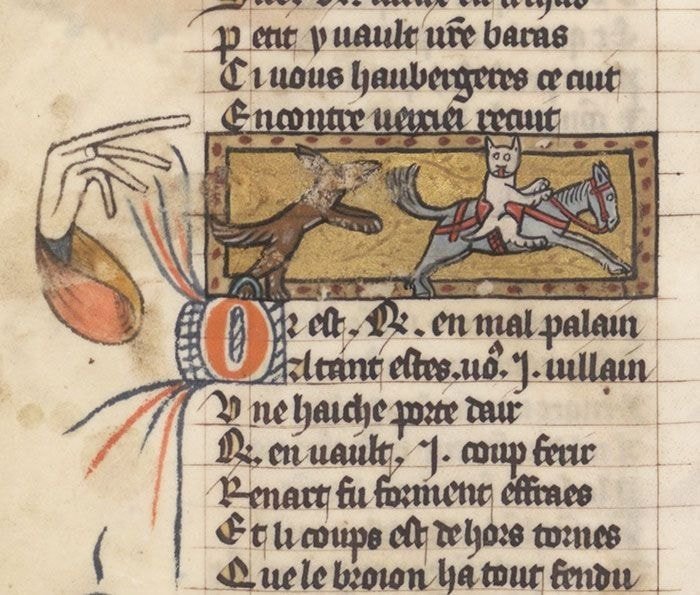 Petit y vault vr̃e baras
Ci vous haubergeres ce cuit
Encontre
Or est .R. en mal palain
Atant estes.uo᷒ .I. villain
Une haiche porte dair
R. en vault .I. coup ferir
Renart fu forment effraes
Et li coups est dehors tornes
Que le broion ha tout fendu